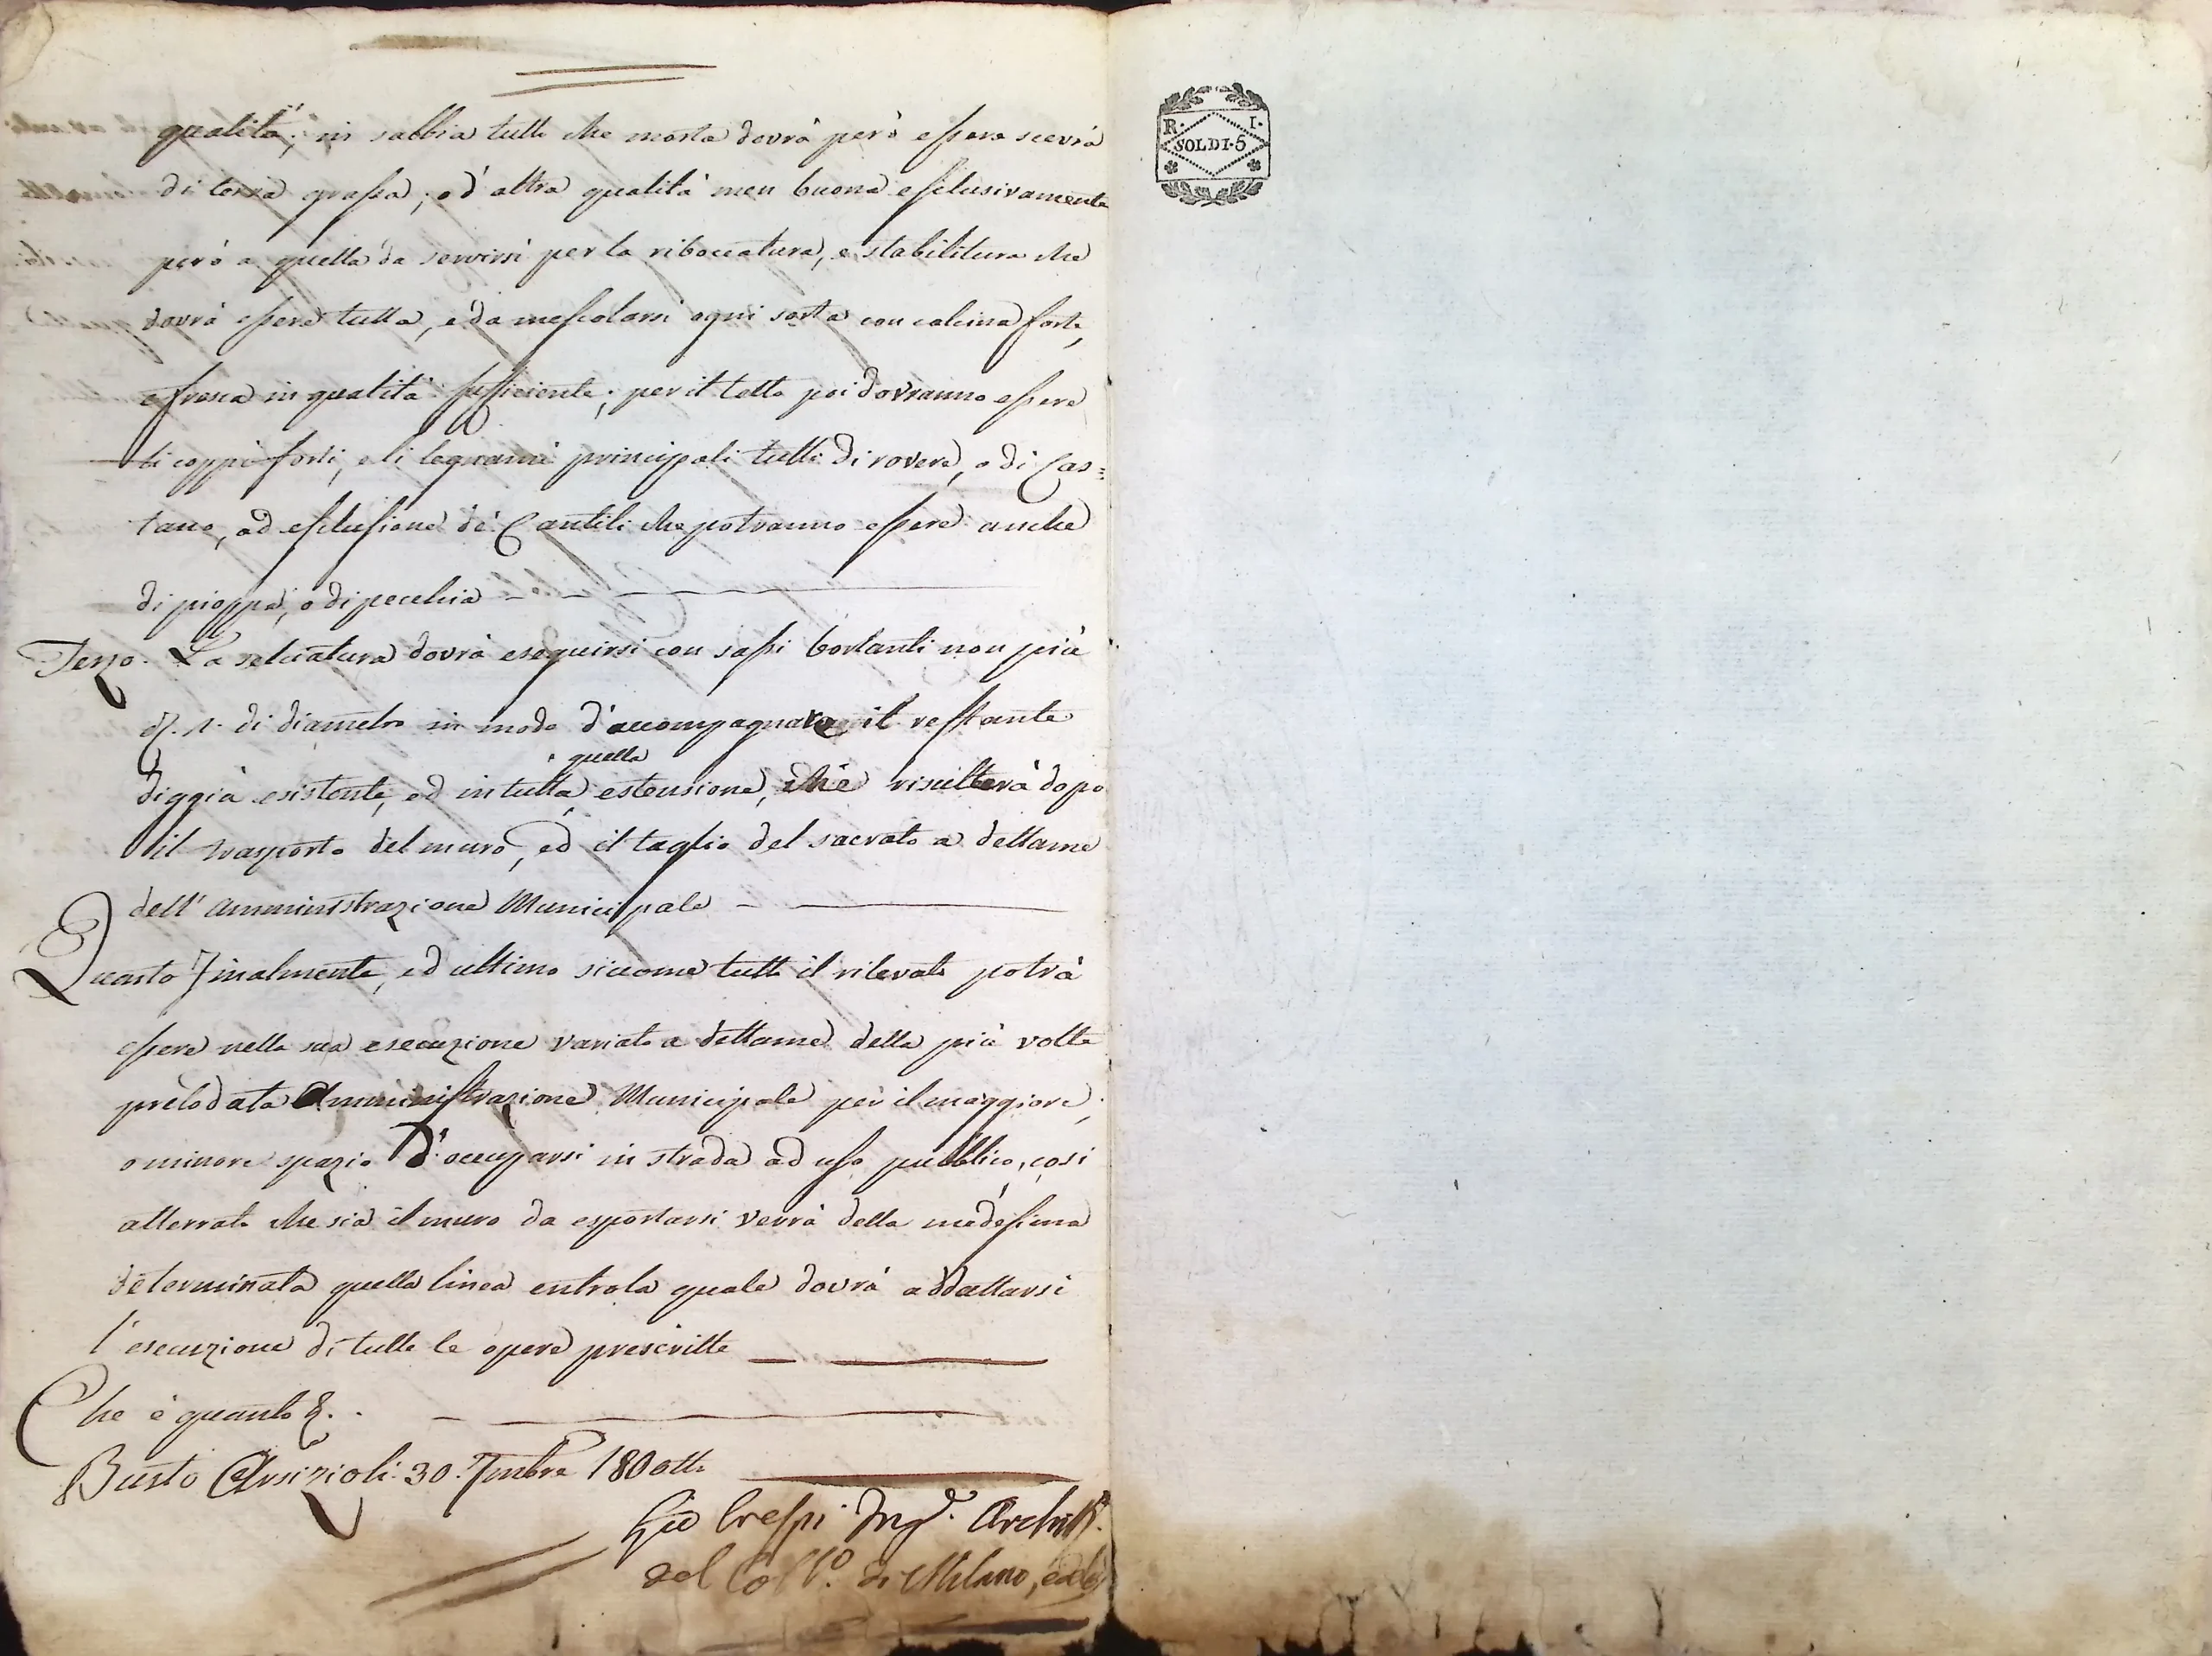 qualità; in sabbia tutto che morta dovrà però essere scevra
di terra grassa, o d'altra qualità men buona esclusivamente
però a quella da servirsi per la riboccatura, e stabilitura che
dovrà essere tutta, e da mescolarsi ogni sorta con calcina forte,
e fresca in qualità sufficiente; per il tetto poi dovranno essere
li coppi forti, e li legnami principali tutti di rovere, o di Cas=
tano, ad esclusione de' Cantili che potranno essere anche
di pioppa, o di pecchia
Terzo. La selciatura dovrà eseguirsi con sassi bortanti non più
1. di diametro in modo d'accompagnare il restante
quella
diggià esistente, ed in tutta estensione, che risulterà dopo
il trasporto del muro, ed il taglio del sacrato a dettame
dell'Amministrazione Municipale
Quarto Finalmente, ed ultimo siccome tutto il rilevato potrà
essere nella sua esecuzione variato a dettame della più volte
prelodata Amministrazione Municipale per il maggiore,
o minore spazio d'occuparsi in strada ad uso pubblico, così
atterrato che sia il muro da esportarsi verrà dalla medesima
determinata quella linea entro la quale dovrà addattarsi
l'esecuzione di tutte le opere prescritte
Che è quanto &.
Busto Arsizio li 30. 7mbre 180otto
Gio Crespi Ing.e Archit.
del Coll.o di Milano,
R. I.
SOLDI·5